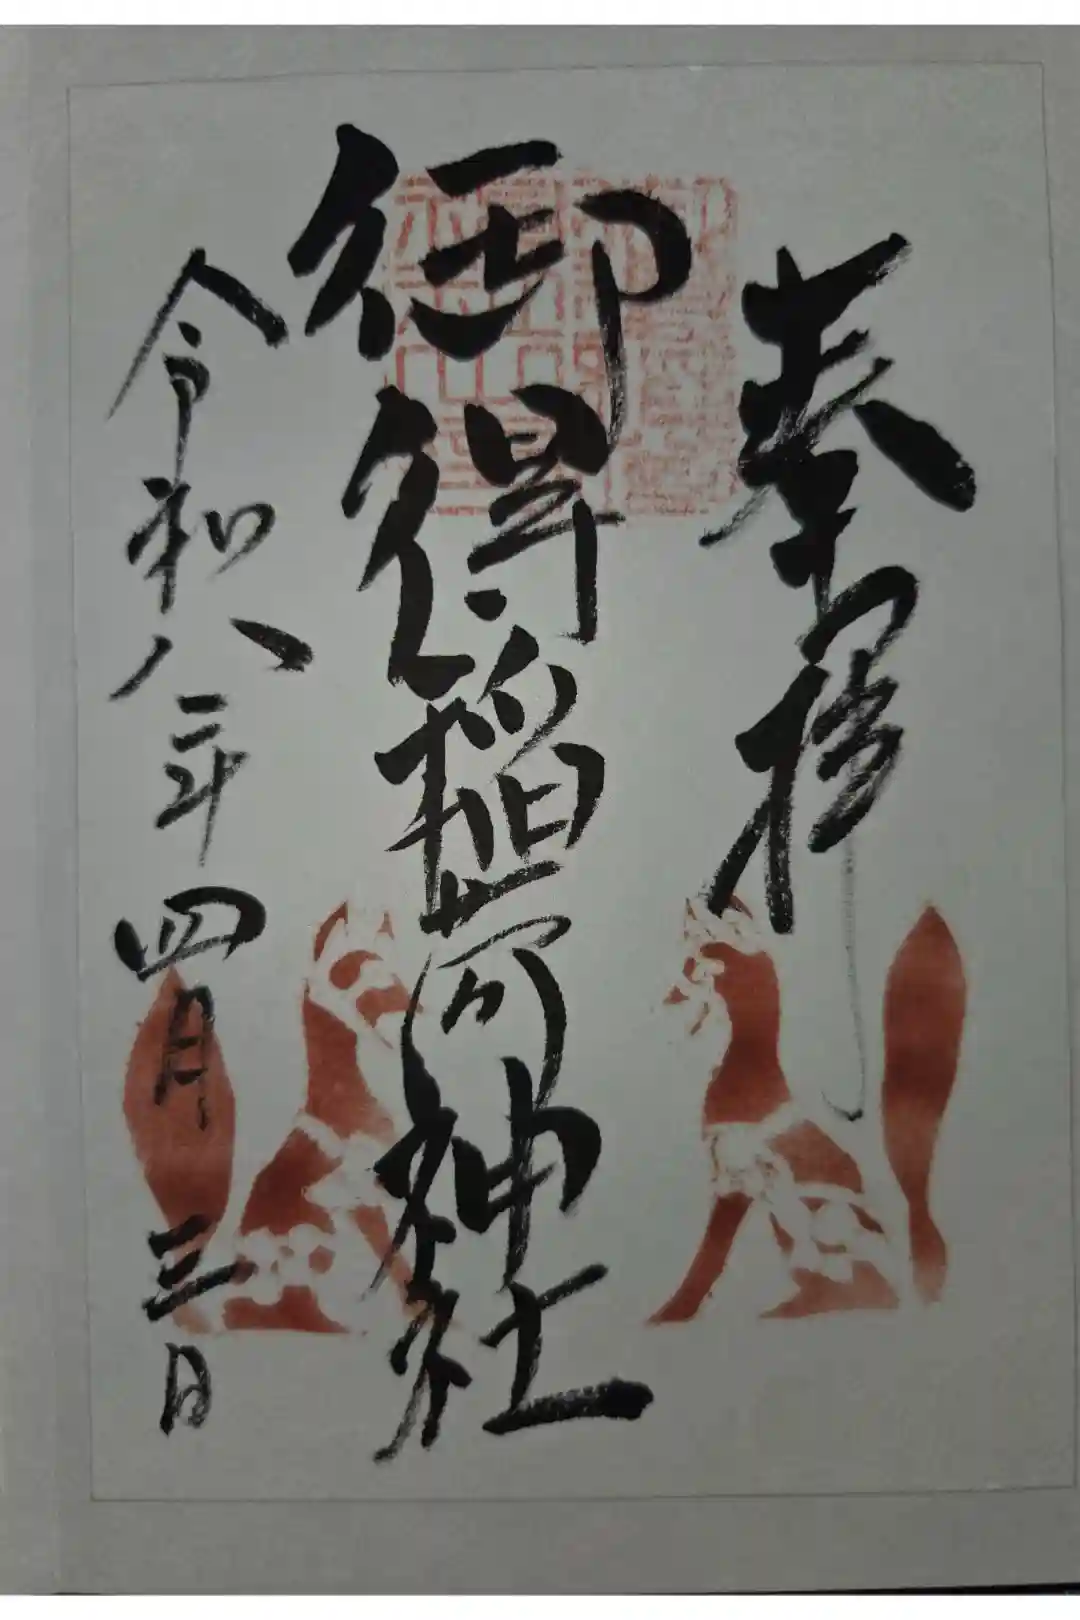 奉拝
御得稲荷神社
令和八年四月三日